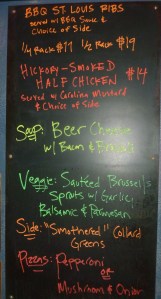 BBQ ST. LOUIS RIBS
served w/ BBQ Sauce &
Choice of Side
1/4 Rack $11 1/2 Rack $19
HICKORY-SMOKED
HALF CHICKEN $14
Served w/ Carolina Mustard
& Choice of Side
Soup: Beer Cheese
w/ Bacon &
Veggie: Sautéed Brussels
Sprouts w/ Garlic,
Balsamic & Parmesan
Side: "Smothered" Collard
Greens
Pizzas: Pepperoni
or
Mushroom & Onion